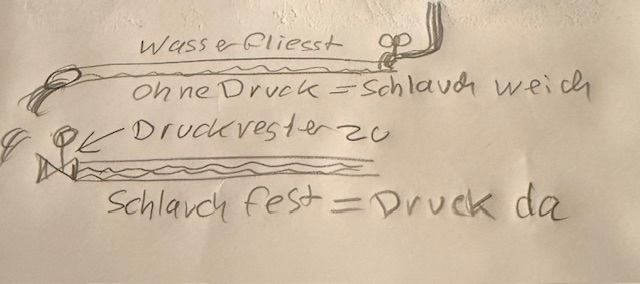 Wasser fliesst
ohne Druck = Schlauch weich
Druckvester zu
Schlauch fest = Druck da